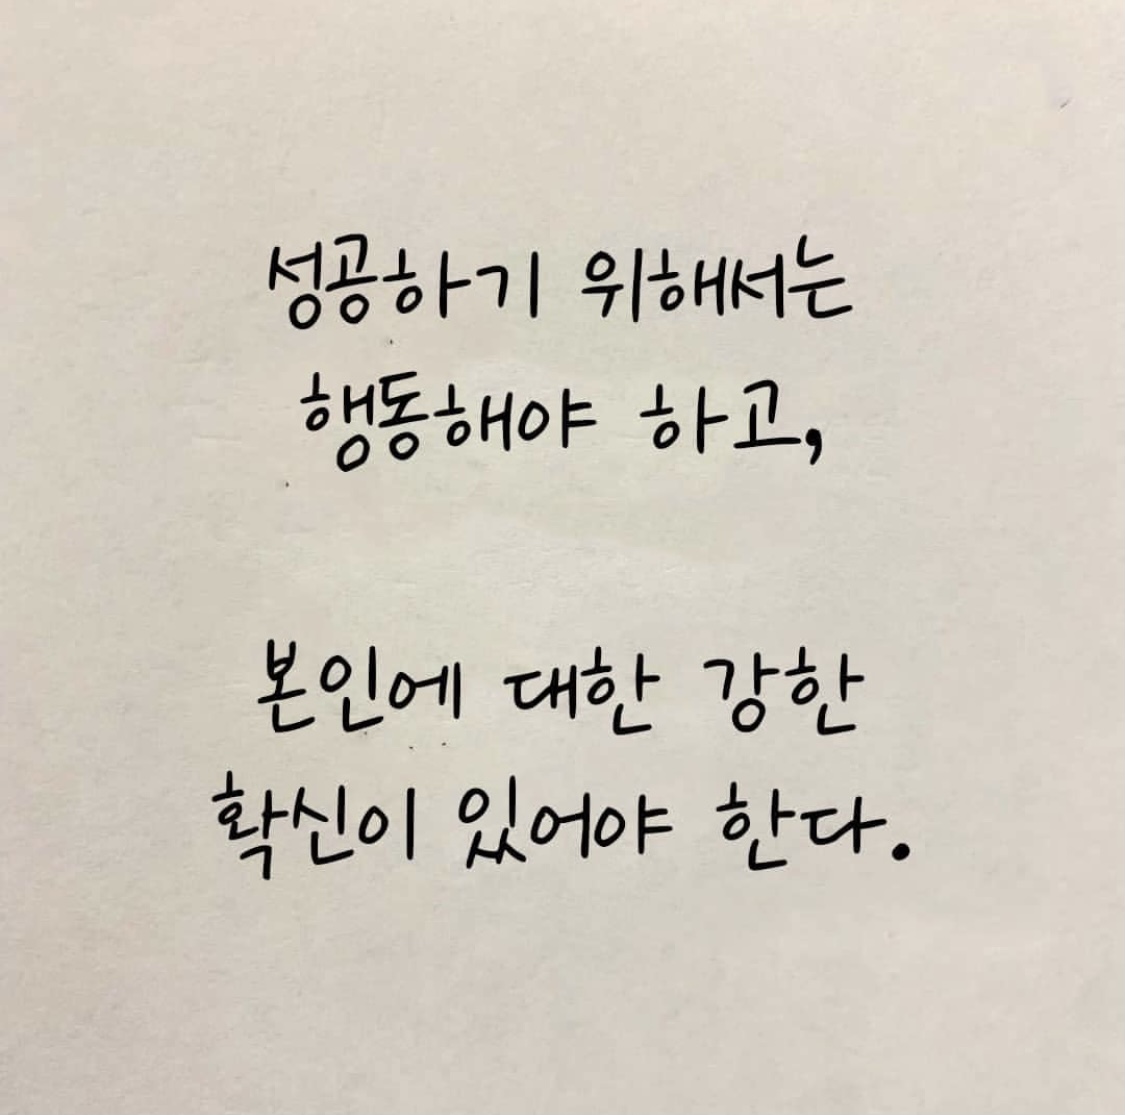 성공하기 위해서는
행동해야 하고,
본인에 대한 강한
확신이 있어야 한다.